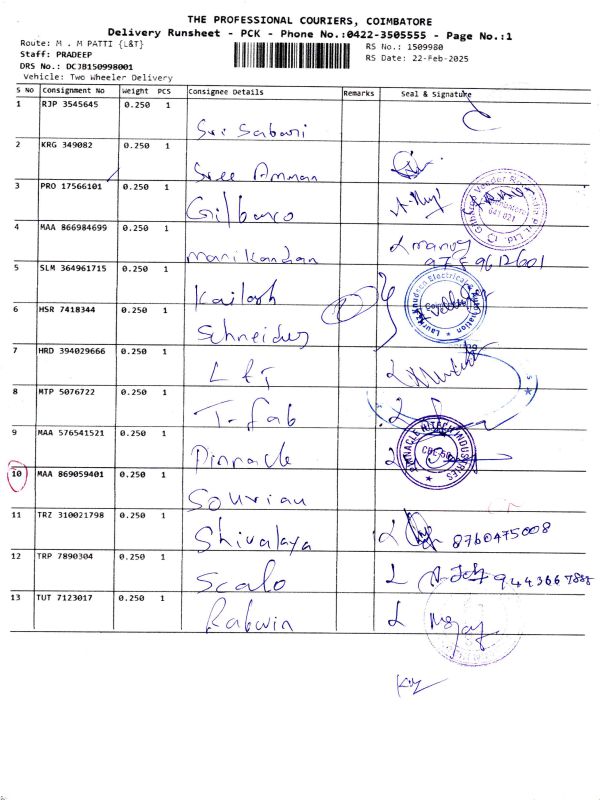 THE PROFESSIONAL COURIERS, COIMBATORE
Delivery Runsheet - PCK - Phone No.:0422-3505555 - Page No.:1
Route: M . M PATTI {L&T}
RS No.: 1509980
Staff: PRADEEP
RS Date: 22-Feb-2025
DRS No.: DCJB150998001
Vehicle: Two Wheeler Delivery
S No Consignment No Weight PCS Consignee Details Remarks Seal & Signature
1 RJP 3545645 0.250 1 Sri Sabari
2 KRG 349082 0.250 1 Sree Amman
3 PRO 17566101 0.250 1 Gilbarco
4 MAA 866984699 0.250 1 manikandan
5 SLM 364961715 0.250 1 Kailash
6 HSR 7418344 0.250 1 Schneider
7 HRD 394029666 0.250 1 L&T
8 MTP 5076722 0.250 1 T-fab
9 MAA 576541521 0.250 1 Pinnacle PINNACLE HITECH INDUSTRIES
10 MAA 869059401 0.250 1 Souriau
11 TRZ 310021798 0.250 1 Shivalaya 8760475008
12 TRP 7890304 0.250 1 Scalo
13 TUT 7123017 0.250 1 Rabwin